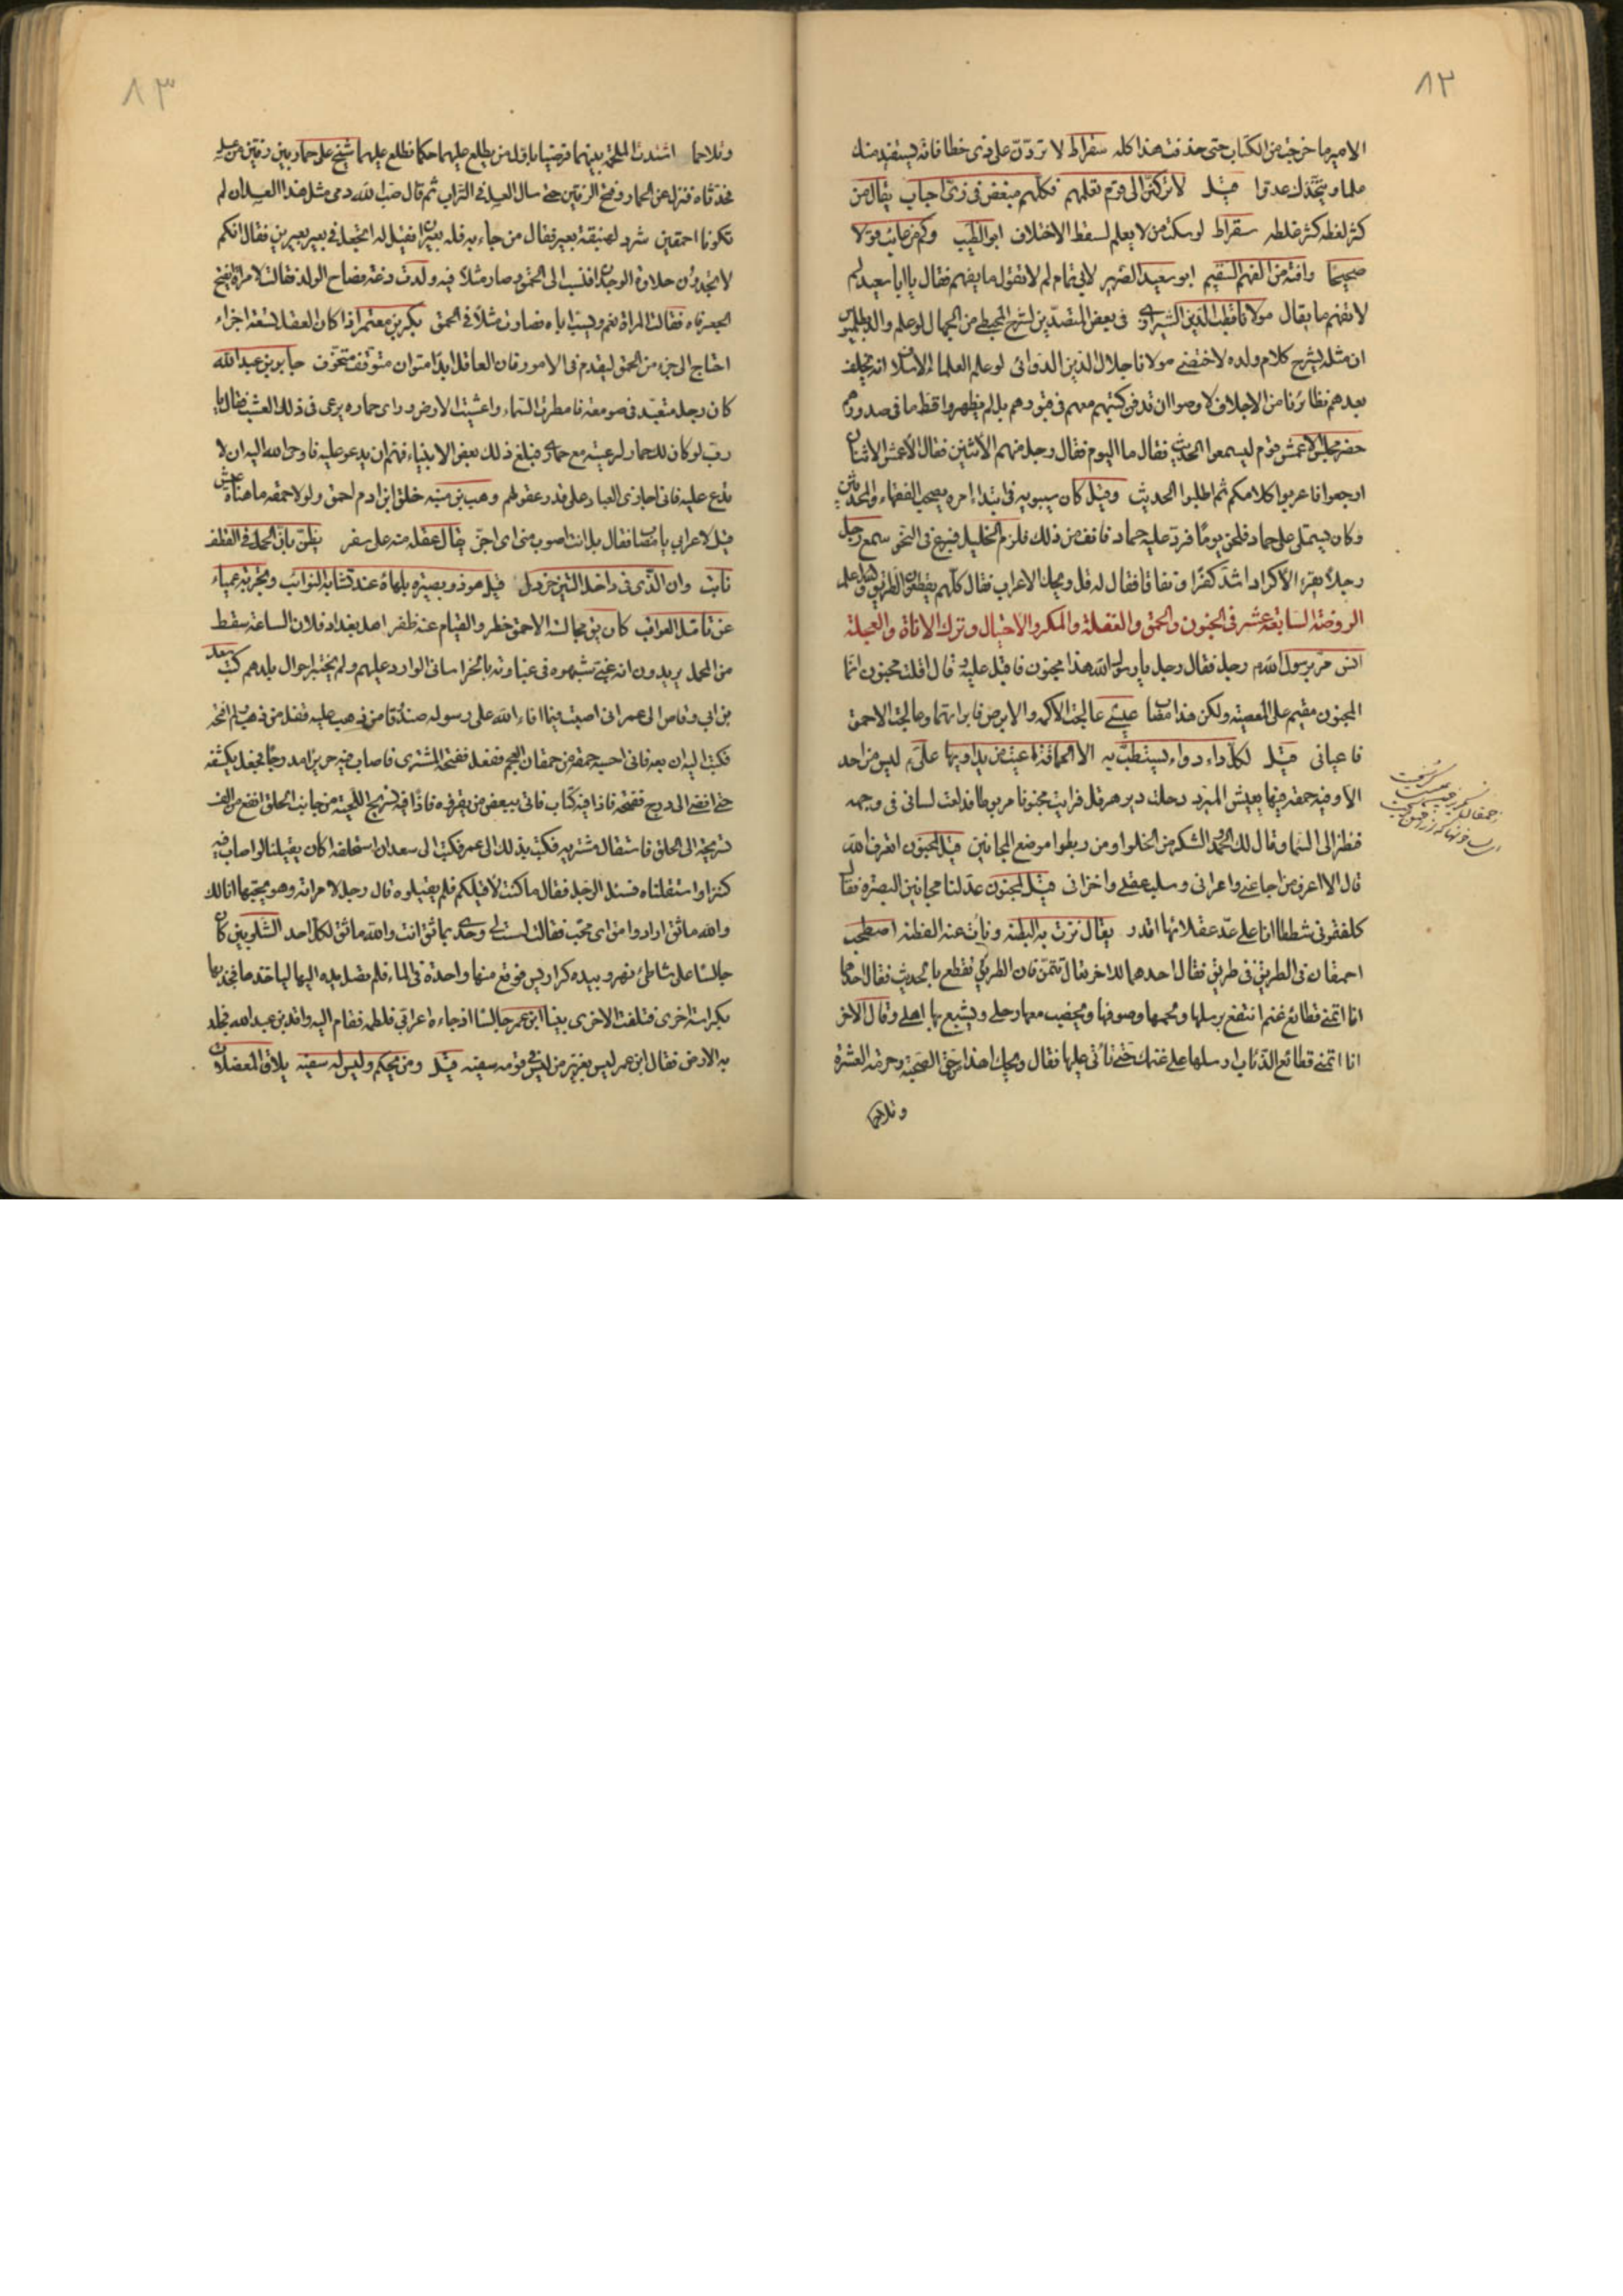 ٨٢
الامير ما خرجت من الكتاب حتى حذفت هذا كله سقراط لا تردّنّ على ذى خطا فانه يستفيد منك
علما و يتخذك عدوا قيل لا تركننّ الى قوم تعلمهم فكلهم مبغض فى زىّ احباب يقال من
كثر لغطه كثر غلطه سقراط لو سكت من لا يعلم لسقط الاختلاف ابو الطيب وكم من عائب قولا
صحيحا وافته من الفهم السقيم ابو سعيد الضرير لابى تمام لم لا تقول ما يفهم فقال يا ابا سعيد لم
لا تفهم ما يقال مولانا قطب الدين الشيرازى فى بعض المتصدّين لشرح المجسطى من الجهال لو علم والد بطلميوس
ان مثله يشرح كلام ولده لاختصى مولانا جلال الدين الدوانى لو علم العلماء الاسلاف انه يخلف
بعدهم نظائرنا من الاجلاف لاوصوا ان تدفن كتبهم معهم فى قبورهم بل لم يظهروا قط ما فى صدورهم
حضر مجلس الاعمش قوم ليسمعوا الحديث فقال ما اليوم فقال رجل منهم الاثنين فقال الاعمش الاثنان
ارجعوا فاعربوا كلامكم ثم اطلبوا الحديث وقيل كان سيبويه فى ابتداء امره يصحب الفقهاء والمحدثين
وكان يستملى على حماد فلحن يوما فردّ عليه حماد فانف من ذلك فلزم الخليل فبرع فى النحو سمع رجل
رجلا يقرء الاكراد اشدّ كفرا و نفاقا فقال له قل ويحك الاعراب فقال كلهم يقطعون الطريق
الروضة السابعة عشر فى الجنون والحمق والغفلة والمكر والاحتيال وترك الاناة والعجلة
انس مرّ برسول الله رجل فقال رجل يا رسول الله هذا مجنون فاقبل عليه قال اقلت مجنون انما
المجنون مقيم على المعصية ولكن هذا مصاب عيسى عالجت الاكمه والابرص فابراتهما وعالجت الاحمق
فاعيانى قيل لكل داء دواء يستطبّ به الا الحماقة اعيت من يداويها على ليس من احد
الا وفيه حمقة فيها يعيش المبرد دخلت دير هرقل فرايت مجنونا مربوطا فدلعت لسانى فى وجهه
فنظر الى السما وقال لك الحمد والشكر من اخلوا ومن ربطوا موضع المجانين قيل لمجنون اتعرف الله
قال الا اعرف من اجاعنى واعرانى وسلب عقلى واخزانى قيل لمجنون عدّ لنا مجانين البصرة فقال
كلفتمونى شططا انا على عدّ عقلائها اقدر يقال نزت به البطنة ونأت عنه الفطنة اصطحب
احمقان فى الطريق فى طريق فقال احدهما للاخر تعال نتمنّ فان الطريق تقطع بالحديث فقال احدهما
انا اتمنى قطائع غنم انتفع برسلها ولحمها وصوفها ويخصب معها رحلى ويشبع بها اهلى وقال الاخر
انا اتمنى قطائع الذئاب ارسلها على غنمك حتى تأتى عليها فقال ويحك اهذا من حق الصحبة وحرمة العشرة
وتلاحما
٨٣
وتلاحما اشتدت الملحمة بينهما فرضيا باول من يطلع عليهما حكما فطلع عليهما شيخ على حمار بين زقين من عسل
فحدثاه فنزل عن الحمار وفتح الزقين حتى سال العسل فى التراب ثم قال صب الله دمى مثل هذا العسل ان لم
تكونا احمقين شرد لهبنقة بعير فقال من جاء به فله بعيران فقيل له اتجعل فى بعير بعيرين فقال انكم
لا تجدون حلاوة الوجدان فنسب الى الحمق وصار مثلا فيه ولدت دغة فصاح الولد فقالت لامراة ايفتح
الجعر فاه فقالت المراة نعم ويسبّ اباه فصارت مثلا فى الحمق بكر بن معتمر اذا كان العقل تسعة اجزاء
احتاج الى جزء من الحمق ليقدم فى الامور فان العاقل ابدا متوان متوقف متخوف جابر بن عبد الله
كان رجل متعبد فى صومعته فامطرت السماء واعشبت الارض وراى حماره يرعى فى ذلك العشب فقال يا
رب لو كان لك حمار لرعيته مع حمارى فبلغ ذلك بعض الانبياء فهمّ ان يدعو عليه فاوحى الله اليه ان لا
تدع عليه فانى اجازى العباد على قدر عقولهم وهب بن منبه خلق ابن ادم احمق ولولا حمقه ما هناه عيش
قيل لاعرابى يا مصاب فقال بل انت اصوب منى اى اجنّ يقال عقله منه على سفر يظنّ بان الحمل فى القطف
ثابت وان الذى فى داخل التين خردل قيل هو ذو بصيرة بلهاء عند تشابه النوائب وتجربة عمياء
عن تامل العواقب كان يق مجالسة الاحمق خطر والقيام عنه ظفر اهل بغداد فلان الساعة سقط
من المحمل يريدون انه غبى شبهوه فى غباوته بالخراسانى الوارد عليهم ولم يختبر احوال بلدهم كتب سعد
بن ابى وقاص الى عمر انى اصبت فيما افاء الله على رسوله صندوقا من ذهب عليه قفل من ذهب لم افتحه
فكتب اليه ان بعه فانى احسبه حمقة من حمقات العجم ففعل ففتحه المشترى فاصاب فيه حريرا مدروجا فجعل يكشفه
حتى افضى الى درج ففتحه فاذا فيه كتاب فاتى ببعض من يقرؤه فاذا فيه تسريح اللحية من جانب الحلق انفع من الف
تسريحة الى الحلق فاستقال مشتريه فكتب بذلك الى عمر فكتب الى سعد ان استحلفه اكان يقيلنا لو اصاب فيه
كنزا واستقلناه فسئل الرجل فقال ما كنت لاقيلكم فلم يقيلوه قال رجل لامراته وهو يحبها انا لك
والله مائق اراد وامق اى محب فقالت لست لى وحدى بمائق انت والله مائق لكل احد الشلوبين كان
جالسا على شاطئ نهر وبيده كراريس فوقع منها واحدة فى الماء فلم تصل يده اليها لياخذها فجذبها
بكراسة اخرى فتلفت الاخرى بينا ابن عمر جالسا اذ جاءه اعرابى فلطمه فقام اليه واقد بن عبد الله فجلد
به الارض فقال ابن عمر ليس بعزيز من ليس فى قومه سفيه قيل ومن يحكم وليس له سفيه يلاق المعضلات